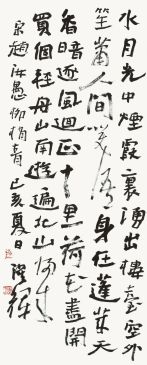 水月光中煙霞裏湧出樓臺空外
笙簫人間笑語身在蓬萊天
香暗逐風迴正十里荷花盡開
買個輕舟山南遊遍北山歸來
宋趙汝愚柳梢青己亥夏日